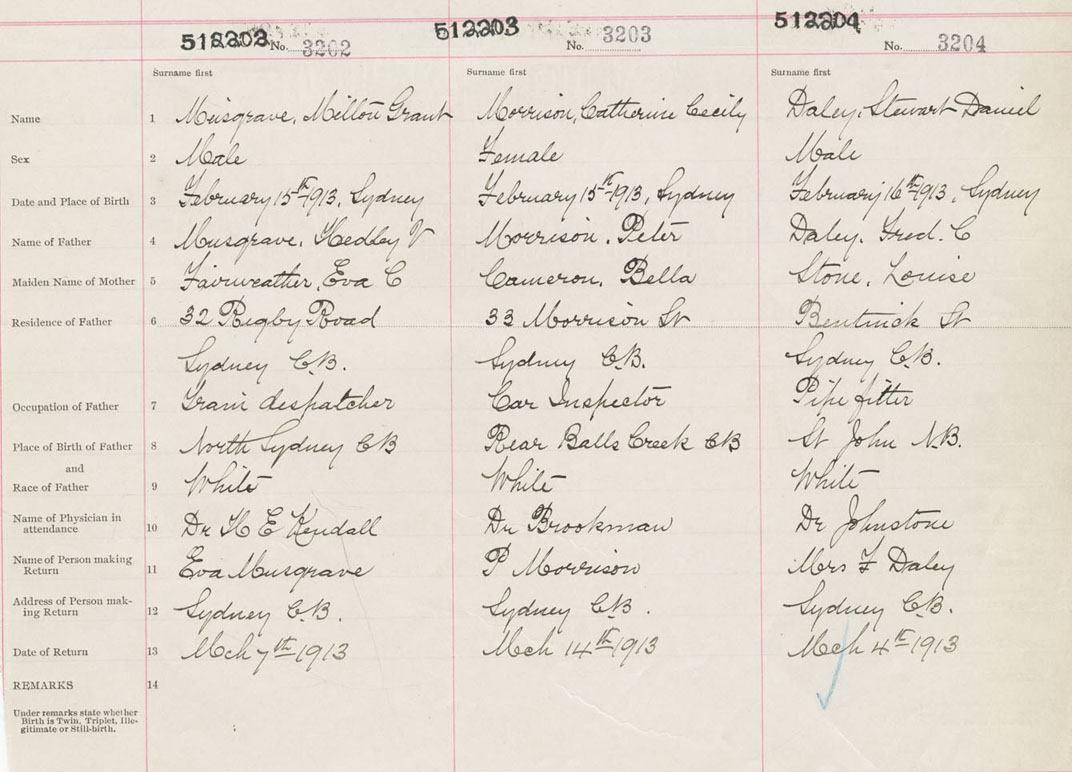 512202 512203 512204
No. 3202 No. 3203 No. 3204
Surname first Surname first Surname first
Name 1 Musgrave, Milton Grant Morrison, Catherine Cecily Daley, Stewart Daniel
Sex 2 Male Female Male
Date and Place of Birth 3 February 15th 1913, Sydney February 15th 1913, Sydney February 16th 1913, Sydney
Name of Father 4 Musgrave, Hedley V Morrison, Peter Daley, Fred. C
Maiden Name of Mother 5 Fairweather, Eva C Cameron, Bella Stone, Louise
Residence of Father 6 32 Rigby Road 33 Morrison St Bentnick St
Sydney C.B. Sydney C.B. Sydney C.B.
Occupation of Father 7 Train despatcher Car Inspector Pipe fitter
Place of Birth of Father 8 North Sydney CB Rear Balls Creek CB St John N.B.
and
Race of Father 9 White White White
Name of Physician in
attendance 10 Dr H E Kendall Dr Brookman Dr Johnstone
Name of Person making
Return 11 Eva Musgrave P Morrison Mrs F Daley
Address of Person mak-
ing Return 12 Sydney C.B. Sydney C.B. Sydney C.B.
Date of Return 13 Mch 7th 1913 Mch 14th 1913 Mch 4th 1913
REMARKS 14
Under remarks state whether
Birth is Twin, Triplet, Ille-
gitimate or Still-birth.